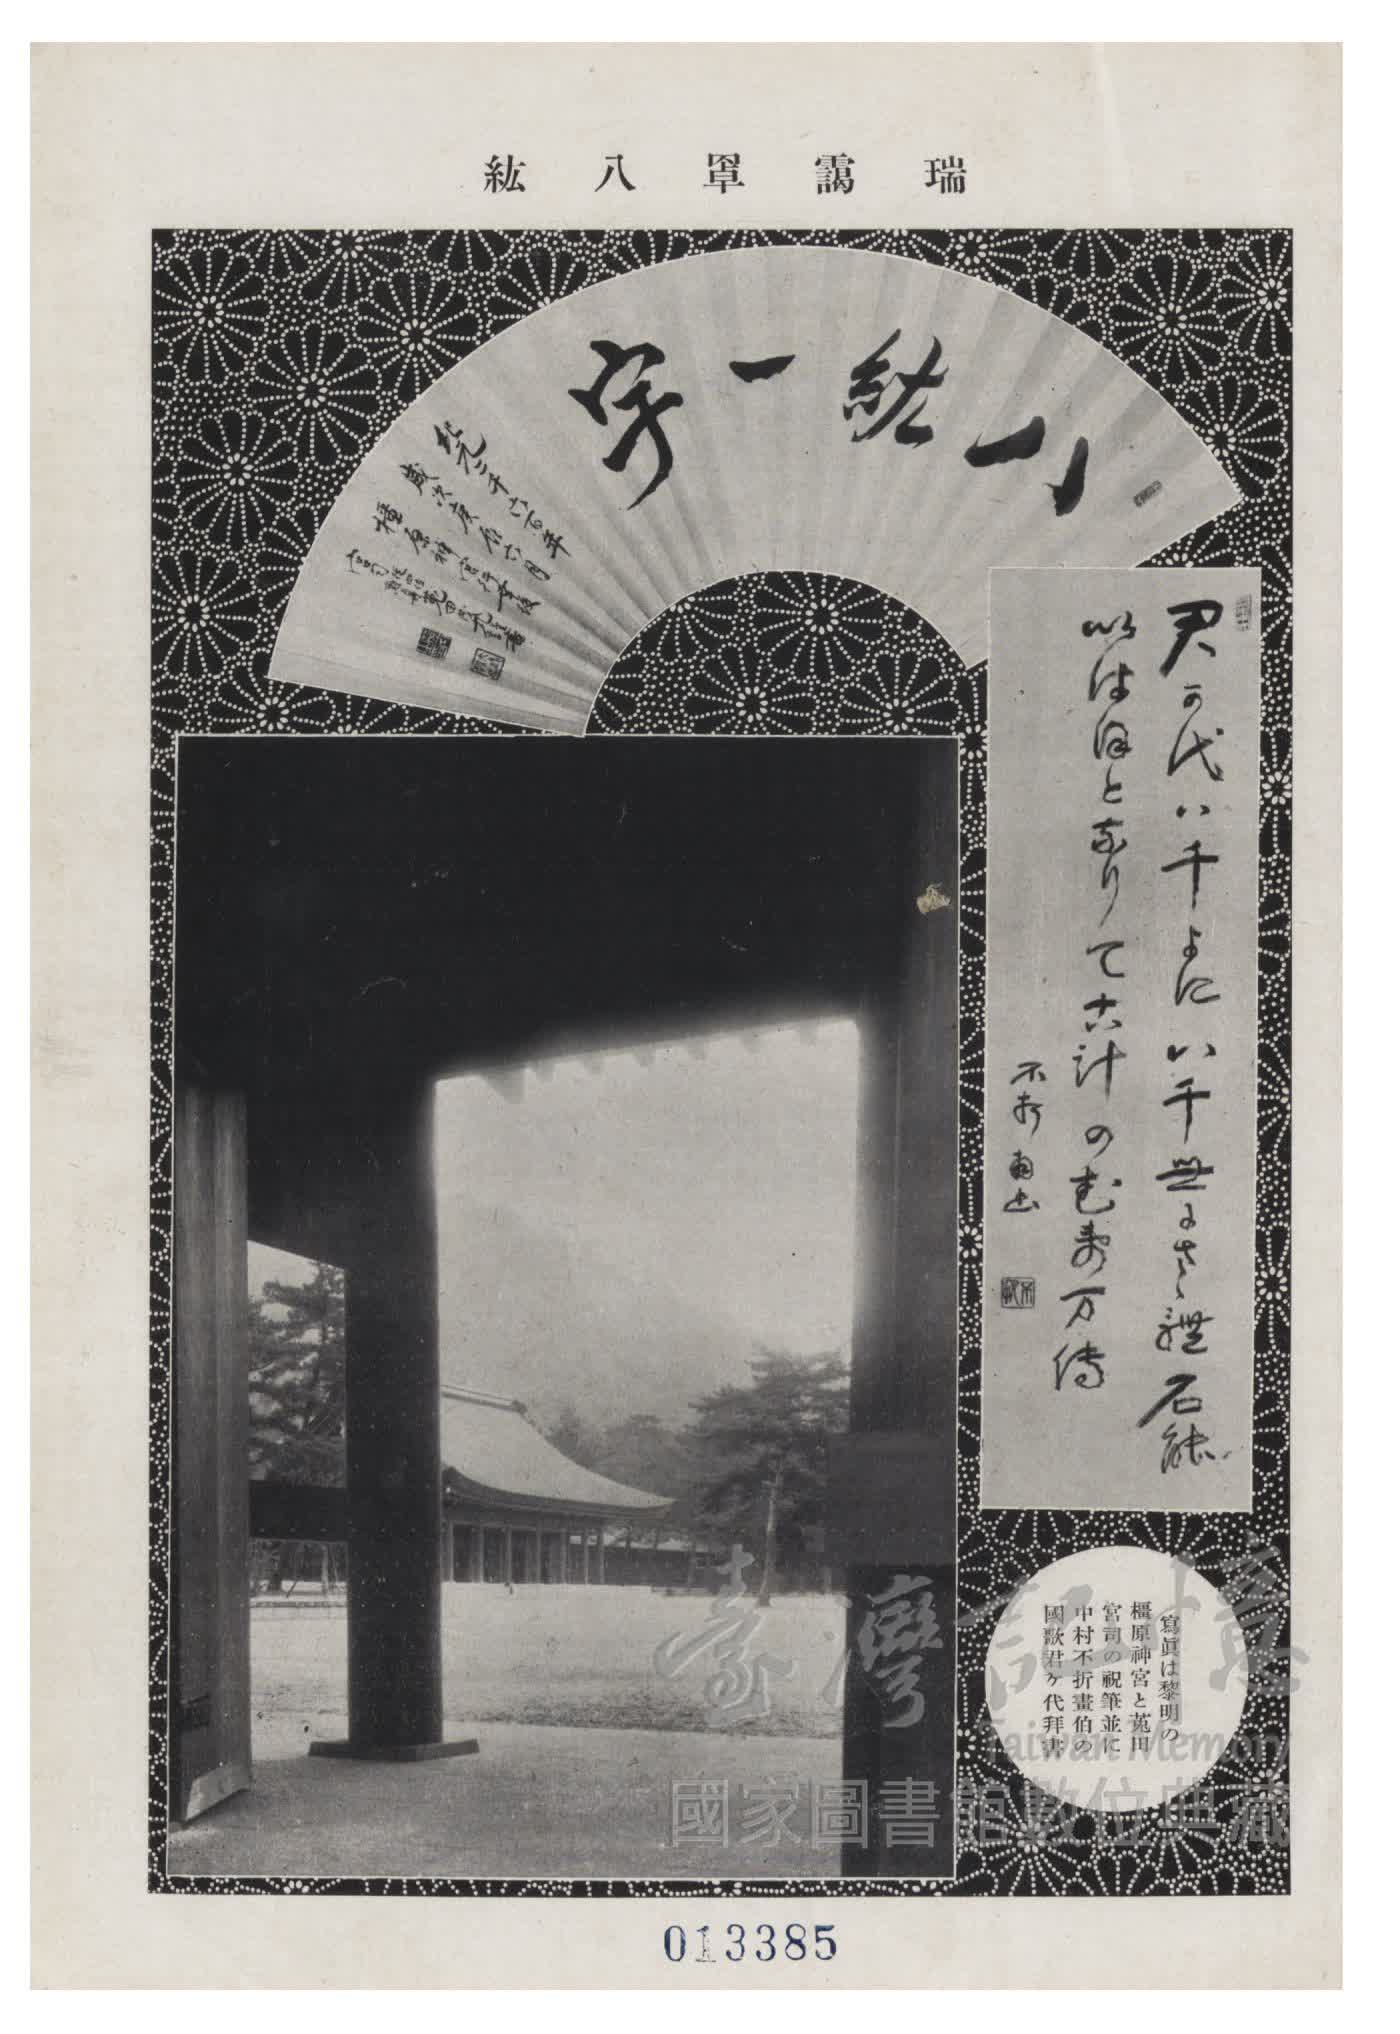 瑞靄罩八紘
八紘一宇
紀元二千六百年
歳次庚辰六月
橿原神宮
宮司
君可代ハ千よにハ千世にさゝ禮石能
以はほとなりて古計のむす万傳
不折
寫眞は黎明の
橿原神宮と菟田
宮司の祝筆並に
中村不折畫伯の
國歌君ヶ代拜書
臺灣記憶
Taiwan Memory
國家圖書館數位典藏
013385